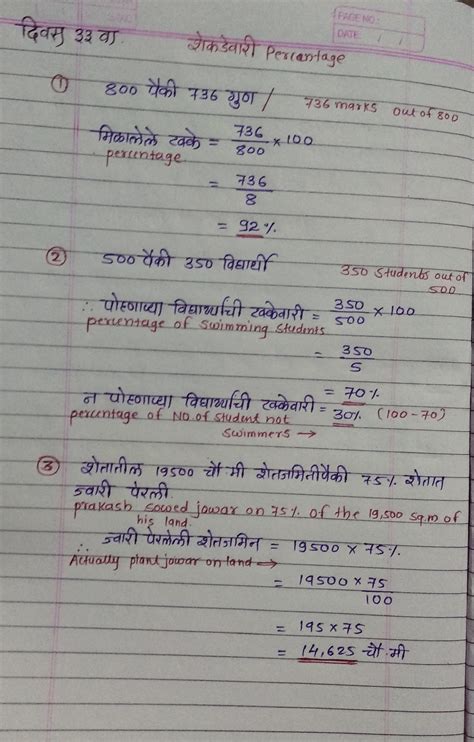 PAGE NO:
DATE: / /
दिवस ३३ वा.
शेकडेवारी Percentage
① 800 पैकी 736 गुण / 736 marks out of 800
मिळालेले टक्के = 736/800 × 100
percentage
= 736/8
= 92%
② 500 पैकी 350 विद्यार्थी 350 students out of
500
∴ पोहणाऱ्या विद्यार्थ्यांची टक्केवारी = 350/500 × 100
percentage of swimming students
= 350/5
= 70%
न पोहणाऱ्या विद्यार्थ्यांची टक्केवारी = 30% (100-70)
percentage of NO. of student not
swimmers →
③ शेतातील 19500 चौ मी शेतजमिनीपैकी 75% शेतात
ज्वारी पेरली.
prakash sowed jowar on 75% of the 19,500 sq.m of
his land.
∴ ज्वारी पेरलेली शेतजमिन = 19500 × 75%
Actually plant jowar on land →
= 19500 × 75/100
= 195 × 75
= 14,625 चौ. मी